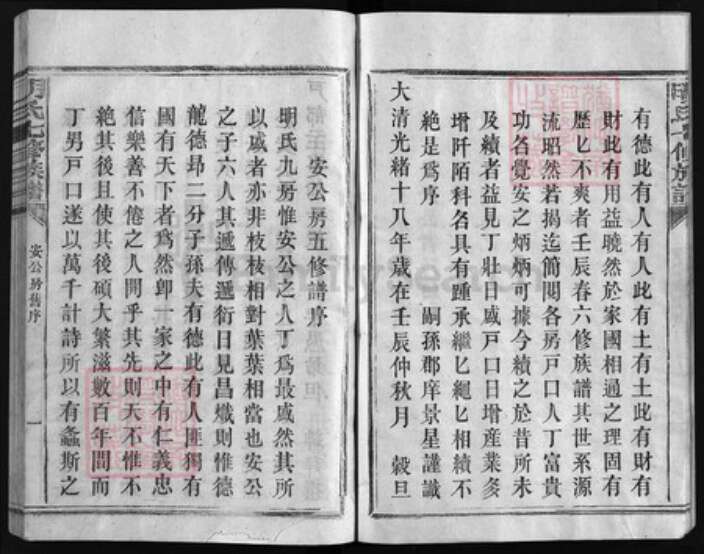 有德此有人有人此有土有土此有財有
財此有用益曉然於家國相通之理固有
歷匕不爽者壬辰春六修族譜其世系源
流昭然若揭迄簡閱各房戶口人丁富貴
功名覺安之炳炳可據今續之於昔所未
及續者益見丁壯日盛戶口日增産業多
增阡陌科名具有踵承繼匕繩匕相續不
絶是爲序
嗣孫郡庠景星謹識
大清光緒十八年歲在壬辰仲秋月 穀旦
安公房五修譜序
明氏九房惟安公之人丁爲最盛然其所
以盛者亦非枝枝相對葉葉相當也安公
之子六人其遞傳遞衍日見昌熾則惟德
龍德昻二分子孫夫有德此有人匪獨有
國有天下者爲然卽一家之中有仁義忠
信樂善不倦之人間乎其先則天不惟不
絶其後且使其後碩大繁滋數百年間而
丁男戶口遂以萬千計詩所以有螽斯之
明氏七修族譜
安公房舊序
一